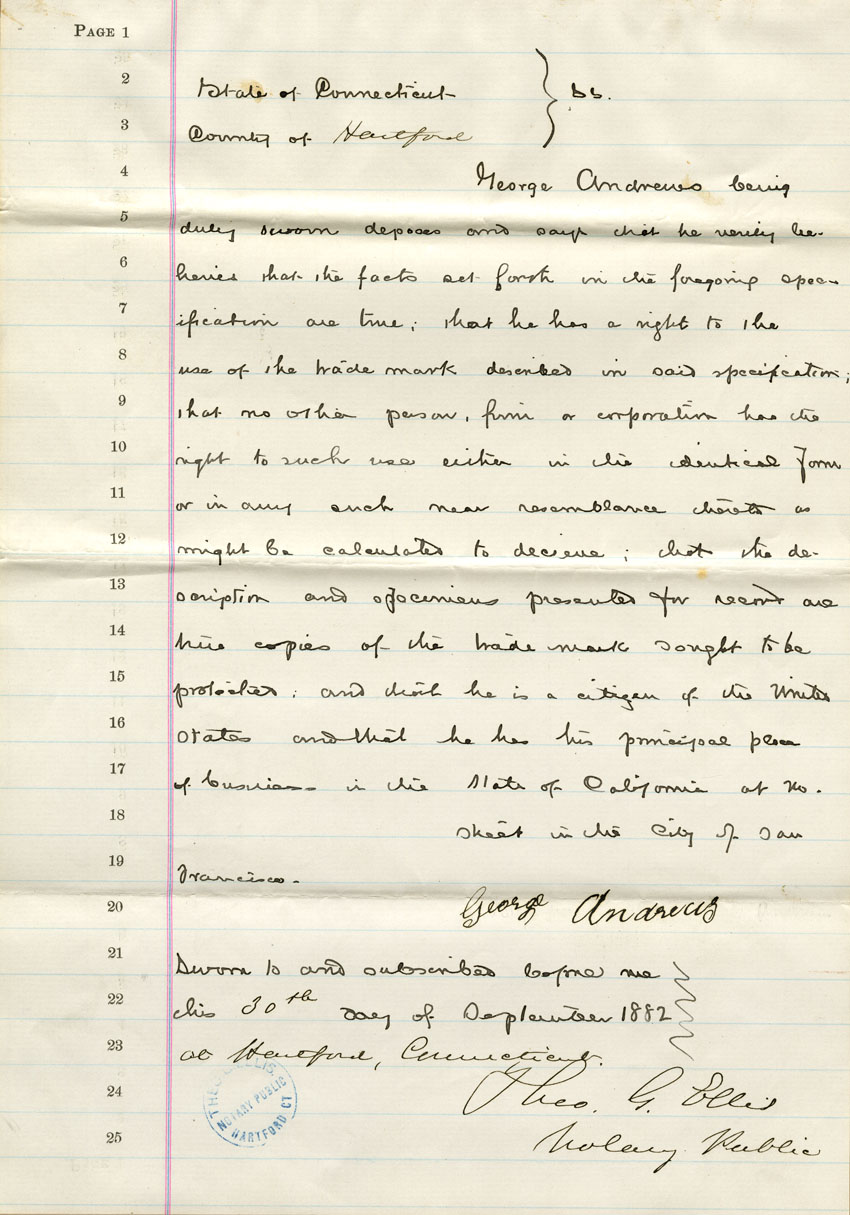 PAGE 1
2
State of Connecticut } ss.
3
County of Hartford
4
George Andrews being
5
duly sworn deposes and says that he verily be-
6
lieves that the facts set forth in the foregoing spec-
7
ification are true; that he has a right to the
8
use of the trade mark described in said specification;
9
that no other person, firm or corporation has the
10
right to such use either in the identical form
11
or in any such near resemblance thereto as
12
might be calculated to decieve; that the de-
13
scription and specimens presented for record are
14
true copies of the trade mark sought to be
15
protected; and that he is a citizen of the United
16
States and that he has his principal place
17
of business in the State of California at No.
18
street in the City of San
19
Francisco.
20
George Andrews
21
Sworn to and subscribed before me
22
this 30th day of September 1882
23
at Hartford, Connecticut.
24
Theo. G. Ellis
25
Notary Public
THEO. G. ELLIS.
NOTARY PUBLIC
HARTFORD CT